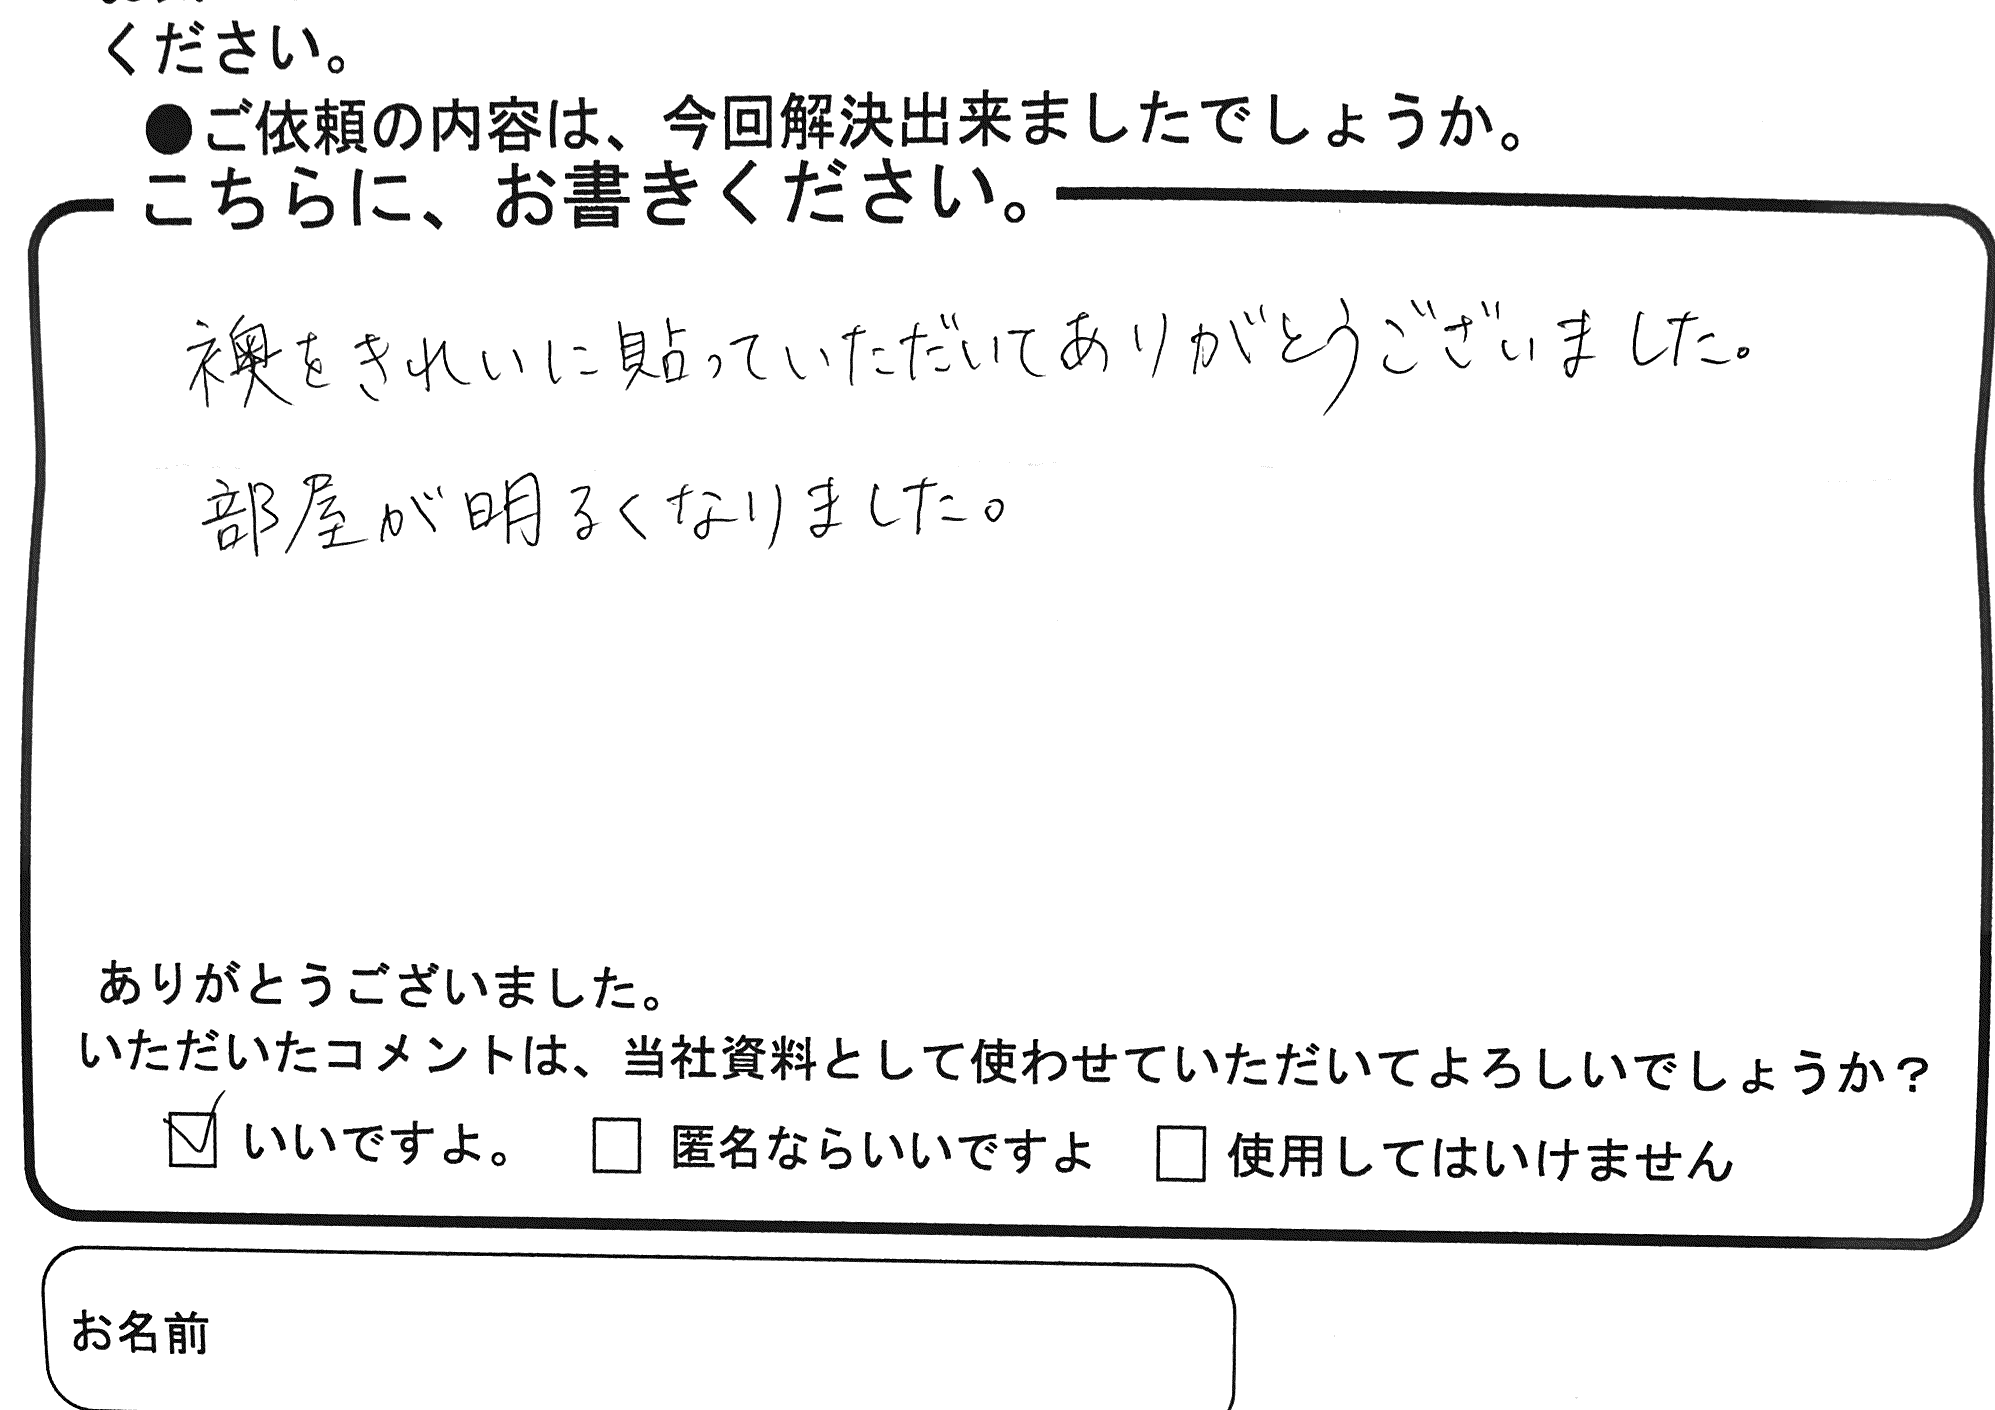 ください。
●ご依頼の内容は、今回解決出来ましたでしょうか。
こちらに、お書きください。
襖をきれいに貼っていただいてありがとうございました。
部屋が明るくなりました。
ありがとうございました。
いただいたコメントは、当社資料として使わせていただいてよろしいでしょうか？
☑ いいですよ。 □ 匿名ならいいですよ □ 使用してはいけません
お名前